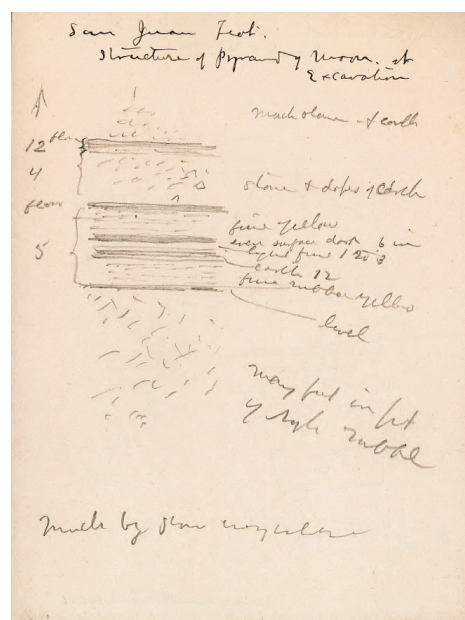 San Juan Teot.
Structure of Pyramid of Moon. at
Excavation
much stone & earth
12 floor
4
stone & of earth
floor
fine yellow
even surface dark 6 in
light fine 1 to 3
5
earth 12
fine rubber yellow
level
many feet in
of rubble
much by stone